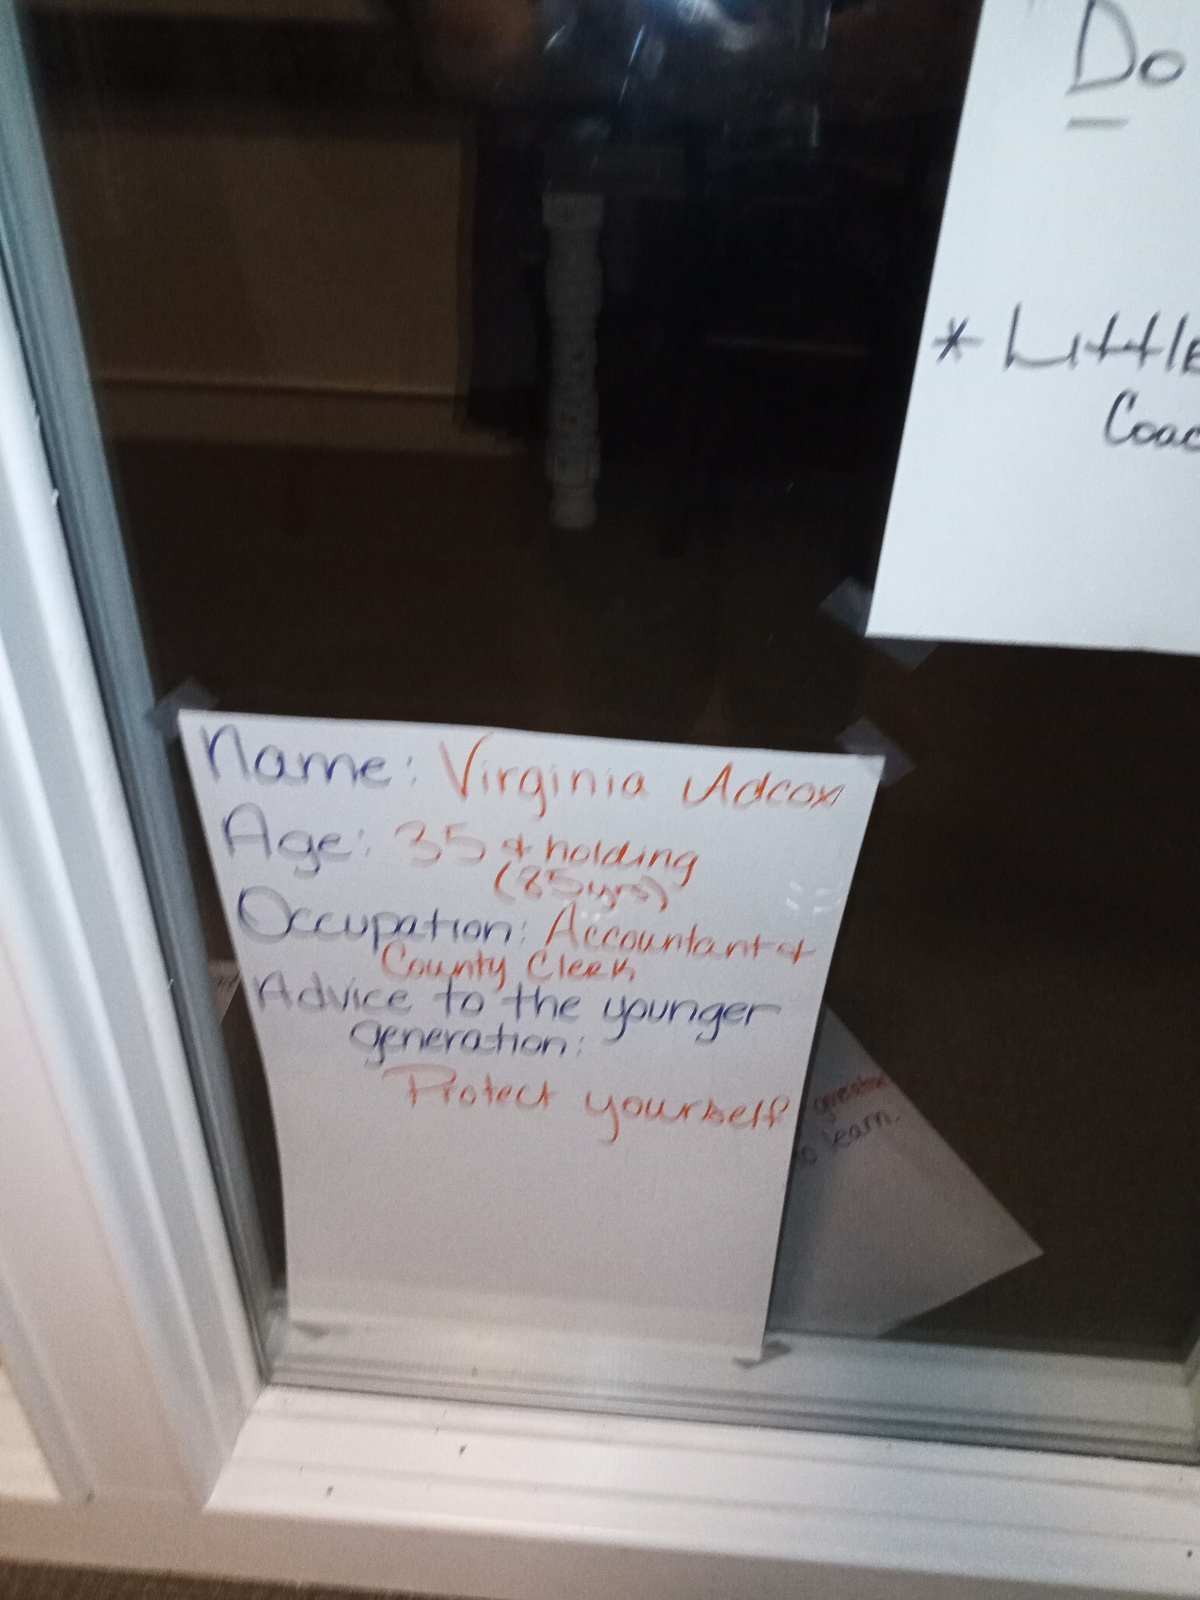 Name: Virginia Adcox
Age: 35 & holding
(85yrs)
Occupation: Accountant &
County Clerk
Advice to the younger
generation:
Protect yourself
Do
* Little
Coac
generation
to learn.